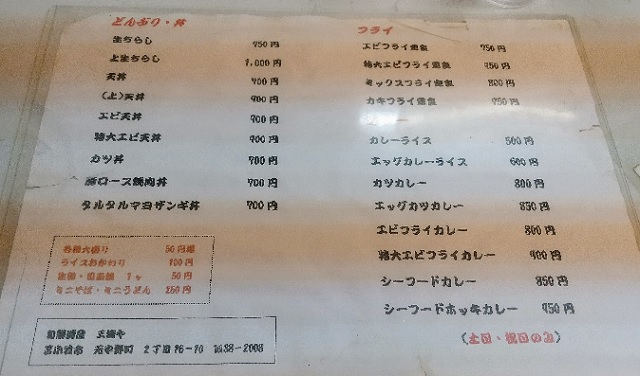 どんぶり・丼
生ちらし 950円
上生ちらし 1,000円
天丼 700円
(上)天丼 900円
エビ天丼 900円
特大エビ天丼 900円
カツ丼 700円
豚ロース焼肉丼 700円
タルタルマヨザンギ丼 700円
各種大盛り 50円増
ライスおかわり 100円
生卵・ 1ヶ 50円
ミニそば・ミニうどん 250円
旬鮮酒座
苫小牧市 2丁目16-10 ℡38-2008
フライ
エビフライ定食 750円
特大エビフライ定食 950円
ミックスフライ定食 800円
カキフライ定食 750円
カレーライス 500円
エッグカレーライス 600円
カツカレー 800円
エッグカツカレー 850円
エビフライカレー 800円
特大エビフライカレー 900円
シーフードカレー 850円
シーフードホッキカレー 950円
(土日・祝日のみ)